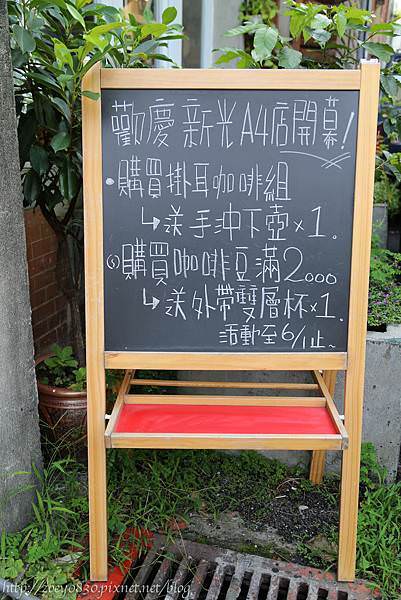 歡慶新光A4店開幕!
•購買掛耳咖啡組
↳送手沖下壺×1.
購買咖啡豆滿2000
↳送外帶雙層杯×1.
活動至6/1止~
http://zoeyo830.pixnet.net/blog